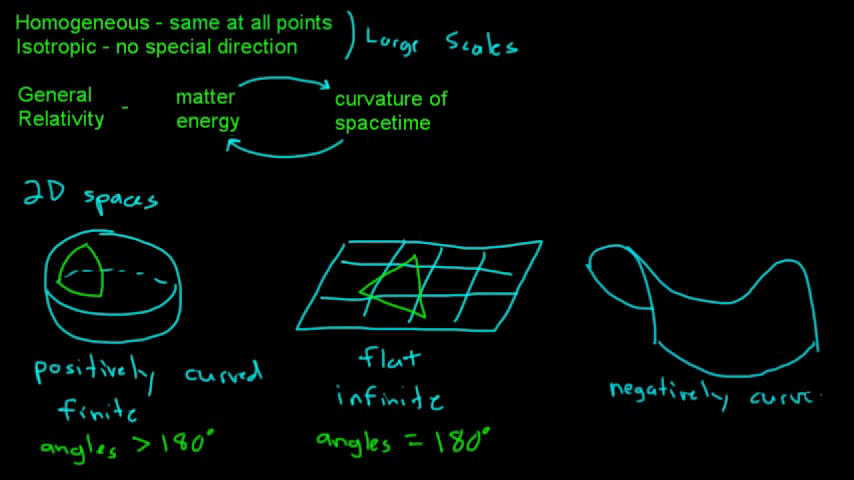 Homogeneous - same at all points
Isotropic - no special direction
Large Scales
General Relativity -
matter energy
curvature of spacetime
2D spaces
positively curved
finite
angles > 180°
flat
infinite
angles = 180°
negatively curve